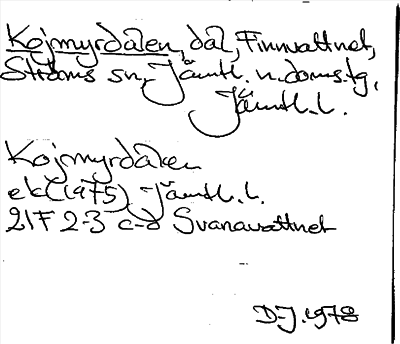 Kojmyrdalen, dal, Finnvattnet,
Ströms sn, Jämtl. n. doms.tg,
Jämtl.l.
Kojmyrdalen
ek (1975) Jämtl.l.
21F 2-3 c-d Svanavattnet
D-J. 1978